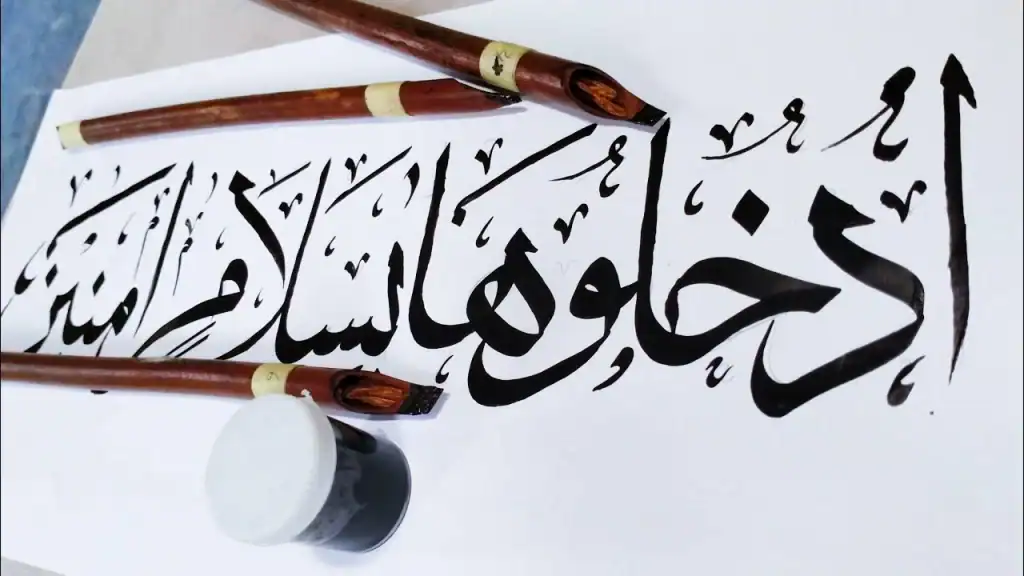 أُدْخُلُوهَا بِسَلَامٍ آمِنِينَ